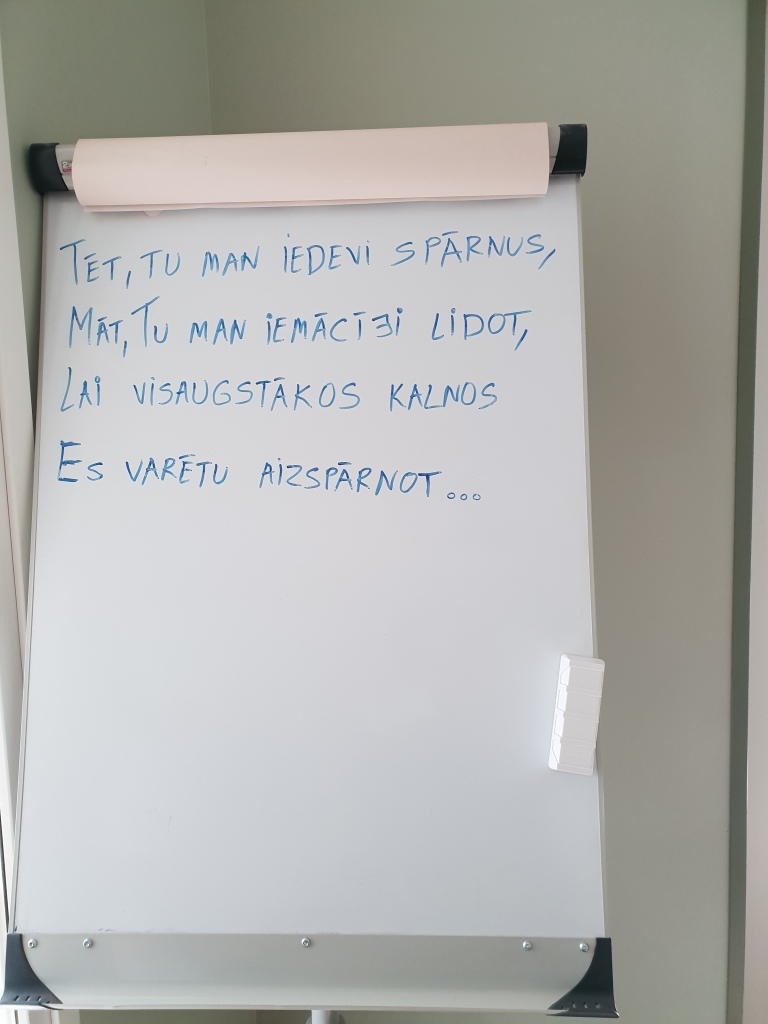 TĒT, TU MAN IEDEVI SPĀRNUS,
MĀT, TU MAN IEMĀCĪJI LIDOT,
LAI VISAUGSTĀKOS KALNOS
ES VARĒTU AIZSPĀRNOT...